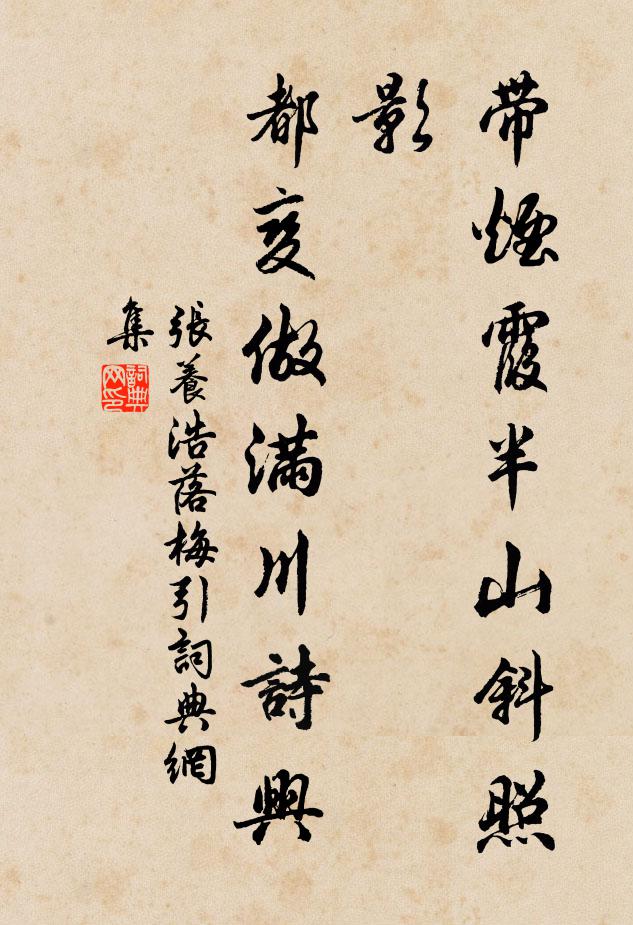 帶煙霞半山斜照
影
都变做滿川詩興
張養浩落梅引詞典網
集
詞典
网印